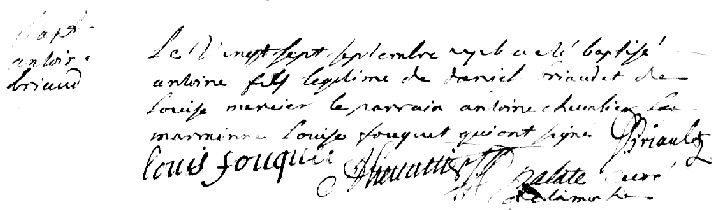 Bapt.
antoine
briaud
Le Vingt sept septembre a eté baptisé
antoine fils legitime de daniel briaud et de
Louise mercier le parrain antoine chevalier La
marrainne Louise fouquet qui ont signé Briault
louis fouquet A chevallier Galate curé